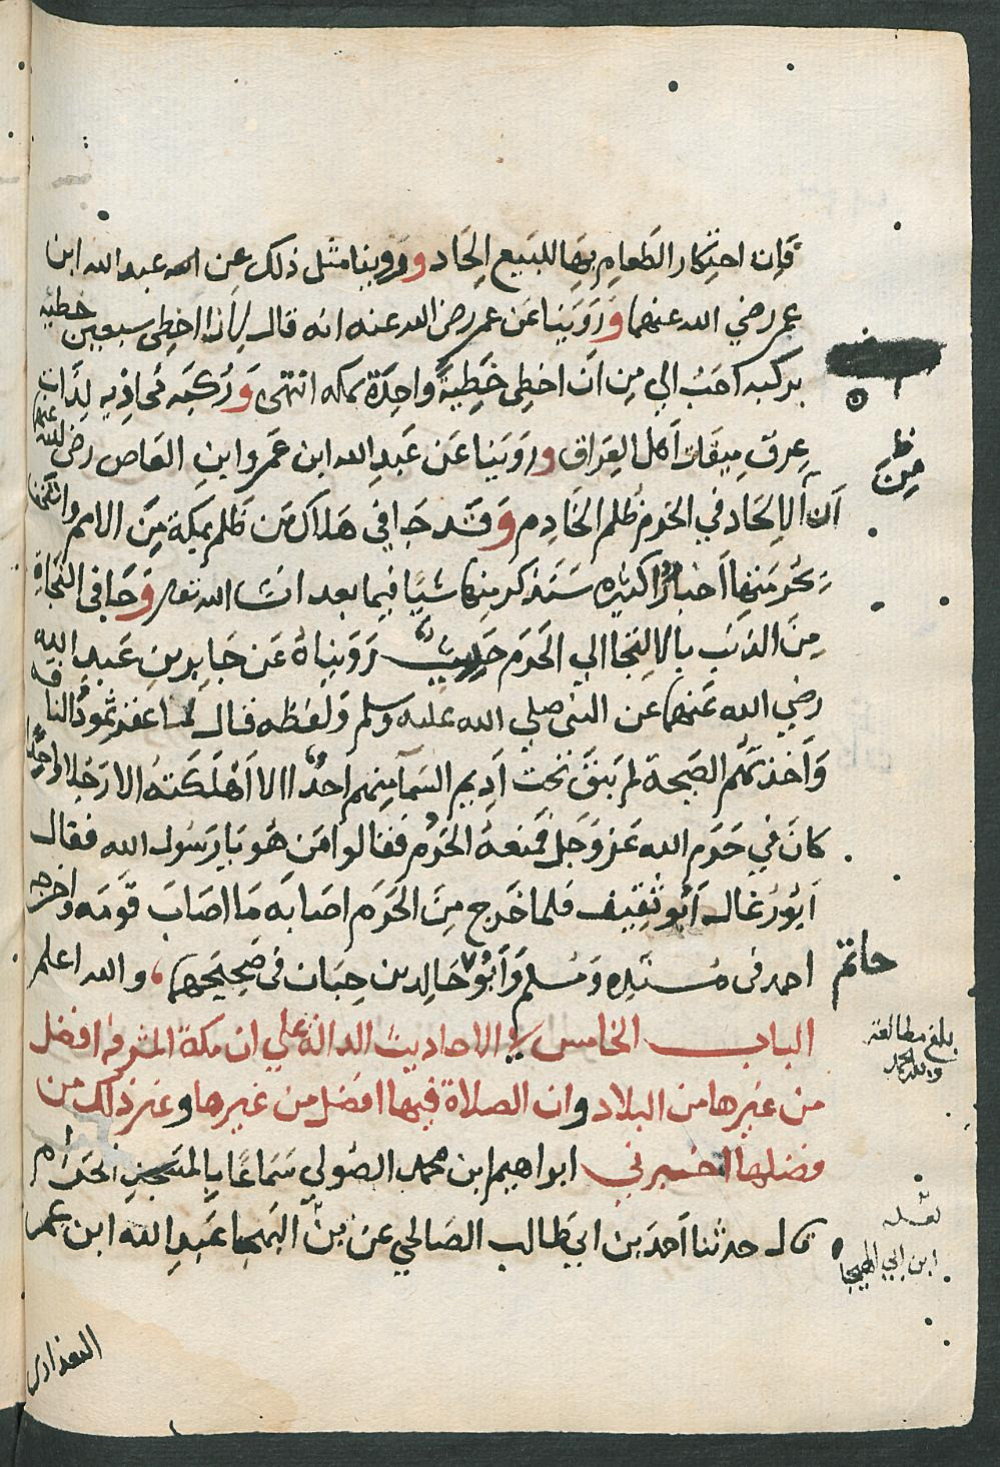 فان احتكار الطعام بها للبيع الحاد وروينا مثل ذلك عن عبد الله ابن
عمر رضي الله عنهما وروينا عن عمر رضي الله عنه انه قال لان اخطى سبعين خطيه
بركبه احب الي من ان اخطى خطية واحدة بمكه انتهى وركبه محاذيه لذات
عرق ميقات اهل العراق وروينا عن عبد الله ابن عمرو ابن العاص رضي الله عنهما
من
ان الالحاد في الحرم ظلم الخادم وقد جا في هلاك من ظلم بمكة من الامم وانتهك
حرمتها اخبار كثيره سنذكر منها شيا فيما بعد ان شا الله تعالى وجا في النجاة
من الذنب بالالتجا الي الحرم حديث رويناه عن جابر بن عبد الله
رضي الله عنهما عن النبي صلي الله عليه وسلم ولفظه قال لما عقر ثمود الناقة
واخذتهم الصيحة لم يبق تحت اديم السما منهم احد الا اهلكته الا رجلا واحدا
كان في حرم الله عز وجل فمنعه الحرم فقالوا من هو يا رسول الله فقال
ابو رغال ابو ثقيف فلما خرج من الحرم اصابه ما اصاب قومه واخرجه
احمد في مسنده ومسلم وابو حالد بن حبان في صحيحهما والله اعلم
حاتم
الباب الخامس في الاحاديث الدالة علي ان مكة المشرفه افضل
بلغ مطالعة
ولله الحمد
من غيرها من البلاد وان الصلاة فيها افضل من غيرها وغير ذلك من
فضلها اخبرني ابراهيم ابن محمد الصولي سماعا بالمسجد الحرام
قال حدثنا احمد بن ابي طالب الصالحي عن بن عبد الله ابن عمر
لعله
ابن ابي الهيجا
البغدادى